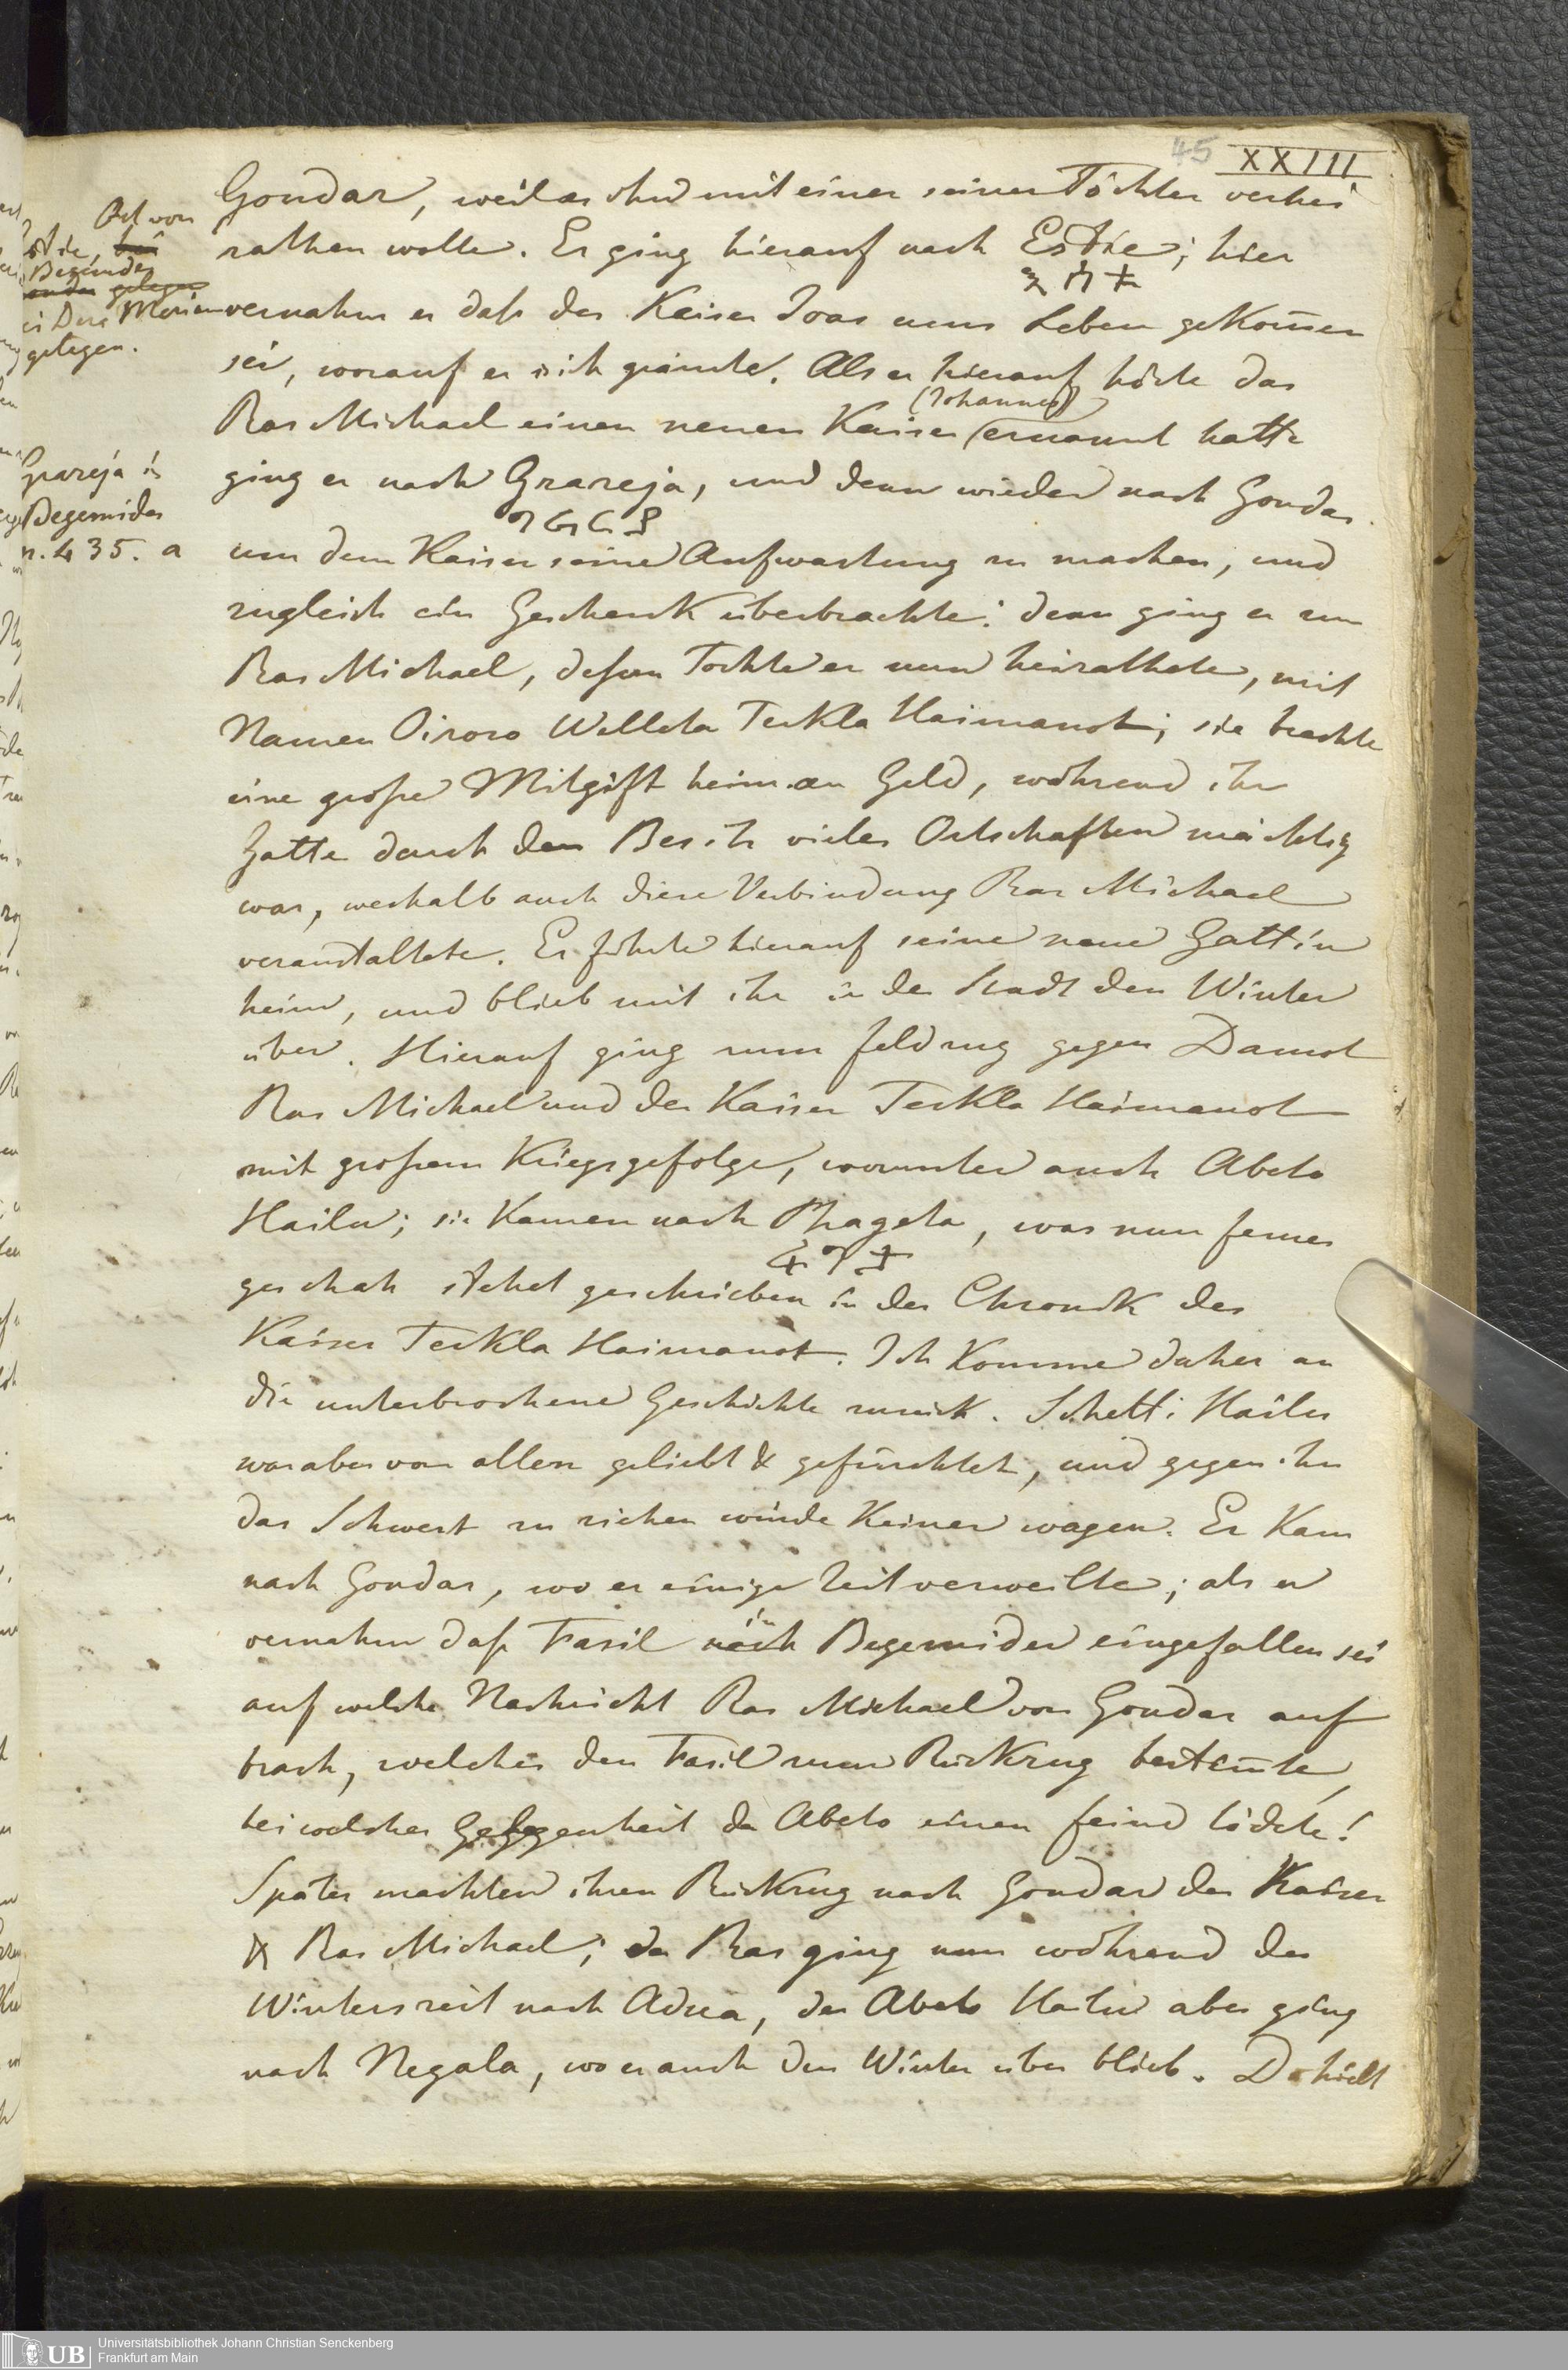 45 XXIII
Gondar, weil er ihn mit einer seiner Töchter verhei
rathen wolle. Er ging hierauf nach Estie; hier
እስቴ
vernahm er daß der Kaiser Joas ums Leben gekom̄en
sei, worauf er sich grämte. Als er hierauf hörte das
(Johannes)
Ras Michael einen neuen Kaiser ernannt hatte
ging er nach Grareja, und dann wieder nach Gondar
ግራርያ
um dem Kaiser seine Aufwartung zu machen, und
zugleich ein Geschenk überbrachte: dann ging er zum
Ras Michael, deßen Tochter er nun heirathete, mit
Namen Oisoro Welleta Teckla Haimanot; sie brachte
eine große Mitgift heim an Geld, während ihr
Gatte durch den Besitz vieler Ortschaften mächtig
war, weshalb auch diese Verbindung Ras Michael
veranstaltete. Er führte hierauf seine neue Gattin
heim, und blieb mit ihr in der Stadt den Winter
über. Hierauf ging zum Feldzug gegen Damot
Ras Michael und der Kaiser Teckla Haimanot
mit großem Kriegsgefolge, worunter auch Abeto
Hailu; sie kamen nach Phageta, was nun ferner
ፋግታ
geschah stehet geschrieben in der Chronik des
Kaiser Teckla Haimanot. Ich komme daher an
die unterbrochene Geschichte zurück. Schetti Hailu
war aber von allen geliebt & gefürchtet, und gegen ihn
das Schwert zu ziehen würde Keiner wagen. Er kam
nach Gondar, wo er einige Zeit verweilte; als er
in
vernahm daß Fasil nach Begemider eingefallen sei
auf welche Nachricht Ras Michael von Gondar auf
brach, welches den Fasil zum Rückzug bestim̄te,
bei welcher Gelegenheit der Abeto einen Feind tödete!
Später machten ihren Rückzug nach Gondar der Kaiser
& Ras Michael; der Ras ging nun während der
Winterszeit nach Adua, der Abeto Hailu aber ging
nach Negala, wo er auch den Winter über blieb. Da hielt
Ort von
Estie, bei
Begemder
gelegen
bei Der Moriam
gelegen.
Grareja in
Begemider
n. 435. a
UB Universitätsbibliothek Johann Christian Senckenberg
Frankfurt am Main